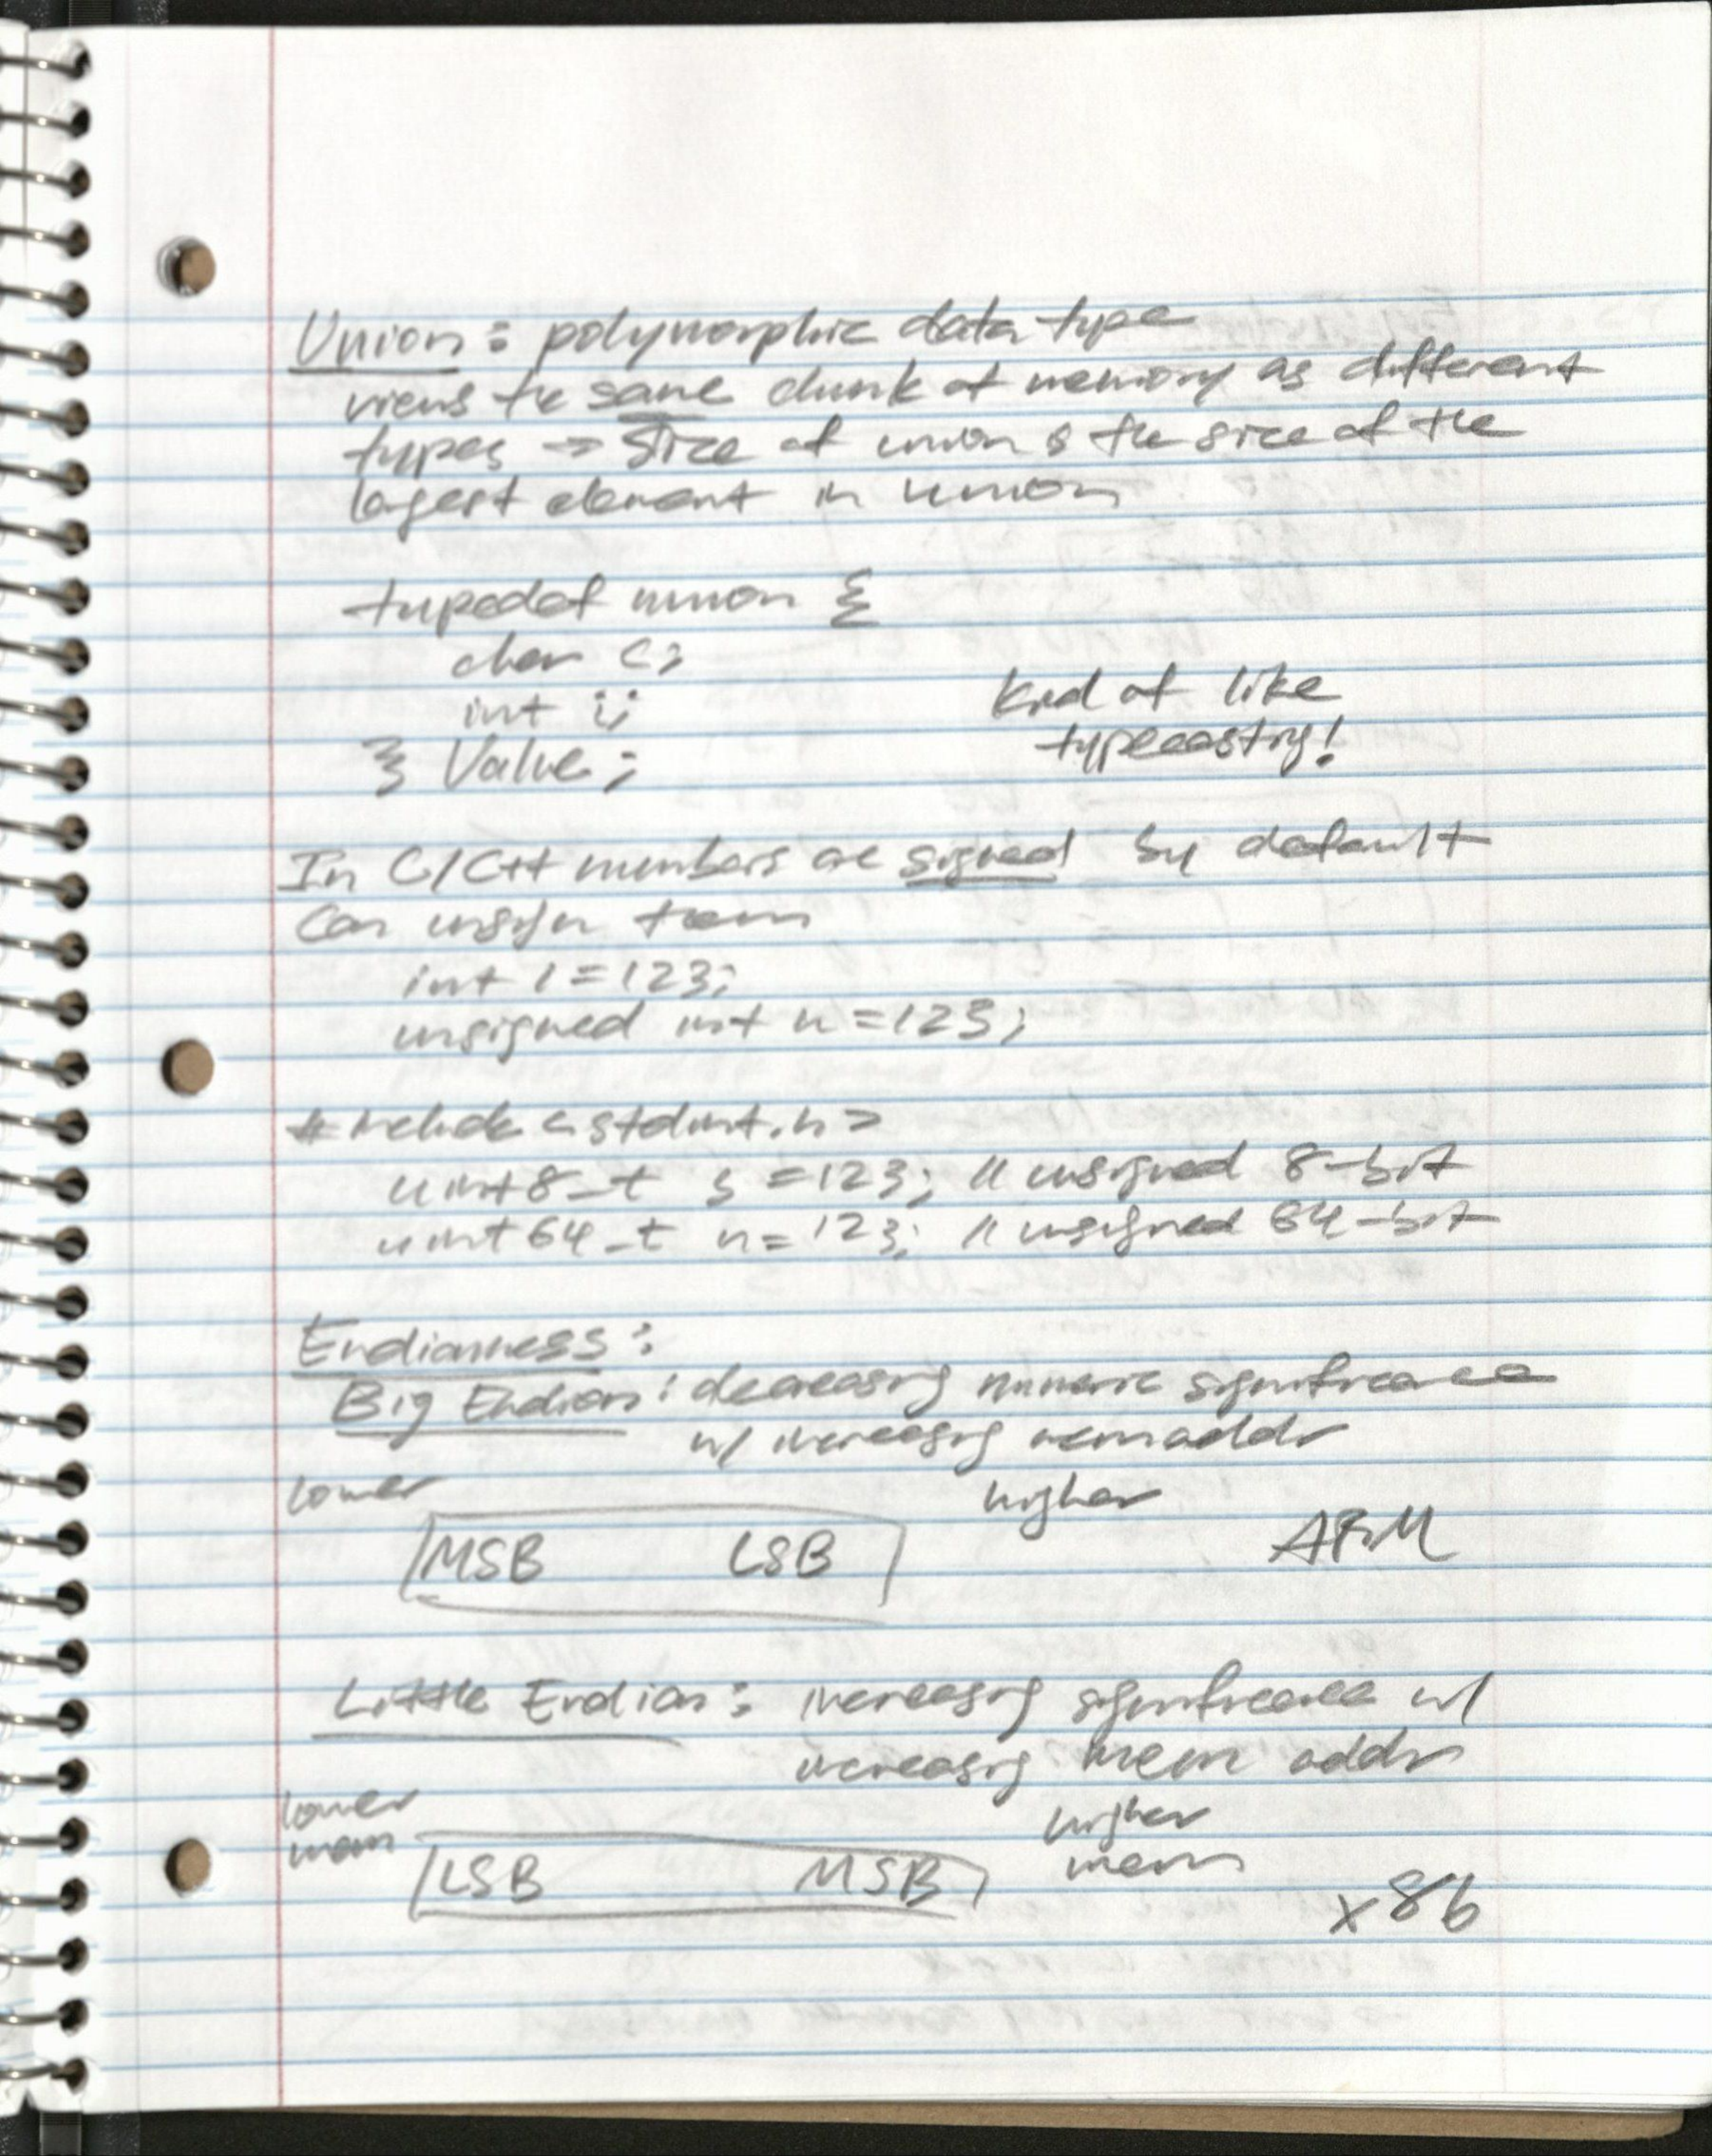 Union: polymorphic data type
views the same chunk of memory as different
types → Size of union is the size of the
largest element in union
typedef union {
char c;
int i;
} Value;
Kind of like
typecasting!
In C/C++ numbers are signed by default
Can unsign them
int i = 123;
unsigned int n = 123;
#include <stdint.h>
uint8_t s = 123; // unsigned 8-bit
uint64_t n = 123; // unsigned 64-bit
Endianness:
Big Endian: decreasing numeric significance
w/ increasing mem addr
lower
higher
MSB LSB
ARM
Little Endian: increasing significance w/
increasing mem addr
lower
mem
higher
mem
LSB MSB
x86